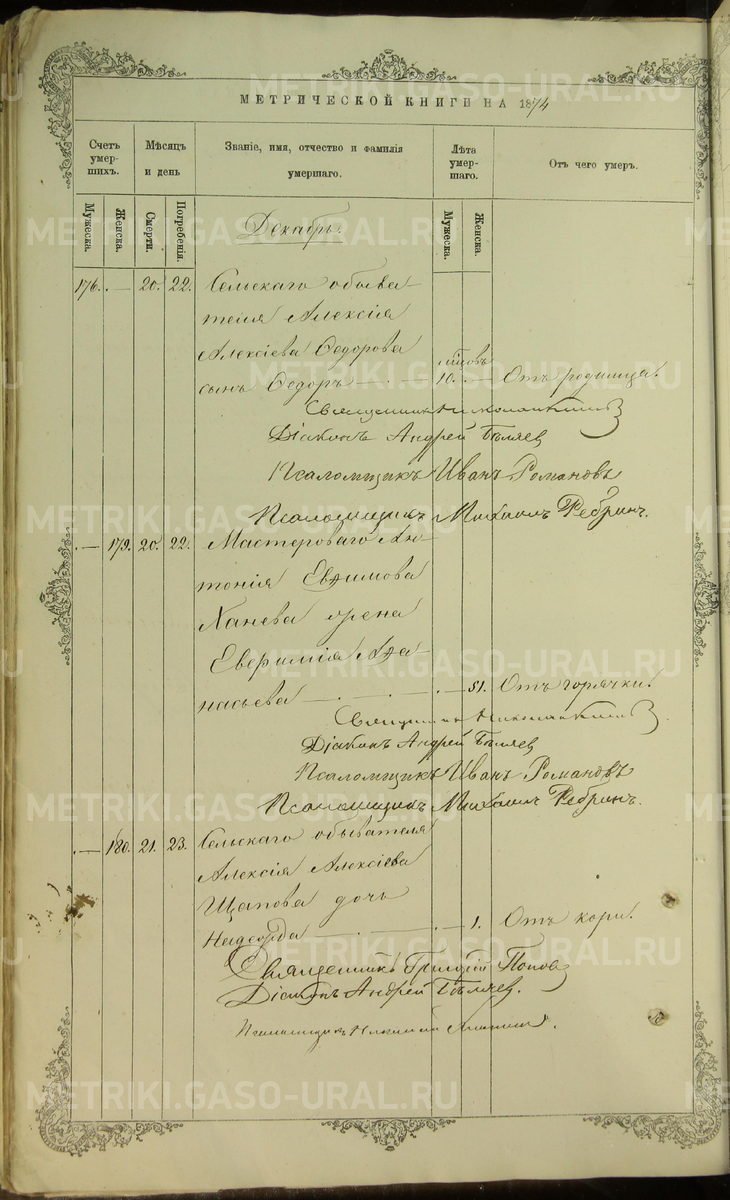 МЕТРИЧЕСКОЙ КНИГИ НА 1874
Счетъ умер-шихъ.
Мѣсяцъ и день
Званіе, имя, отчество и фамилія умершаго.
Лѣта умер-шаго.
Отъ чего умеръ.
Мужеска.
Женска.
Смерти.
Погребенія.
Мужеска.
Женска.
Декабрь.
176. — 20. 22. Сельскаго обыва-
теля Алексія
Алексіева Ѳедорова
сынъ Ѳедоръ — 10. — Отъ родимца.
Священникъ
Діаконъ Андрей Бѣляев
Псаломщикъ Иванъ Романовъ
Псаломщикъ Михаилъ Ребринъ.
— 179. 20. 22. Мастероваго Ан-
тонія Евѳимова
Ханева жена
Еверимія Аѳа-
насьева — 51. Отъ горячки.
Священникъ
Діаконъ Андрей Бѣляев
Псаломщикъ Иванъ Романовъ
Псаломщикъ Михаилъ Ребринъ.
— 180. 21. 23. Сельскаго обывателя
Алексія Алексіева
Щапова дочь
— 1. Отъ кори.
Священникъ Григорій Попов
Діаконъ Андрей Бѣляев.
Псаломщикъ
METRIKI.GASO-URAL.RU